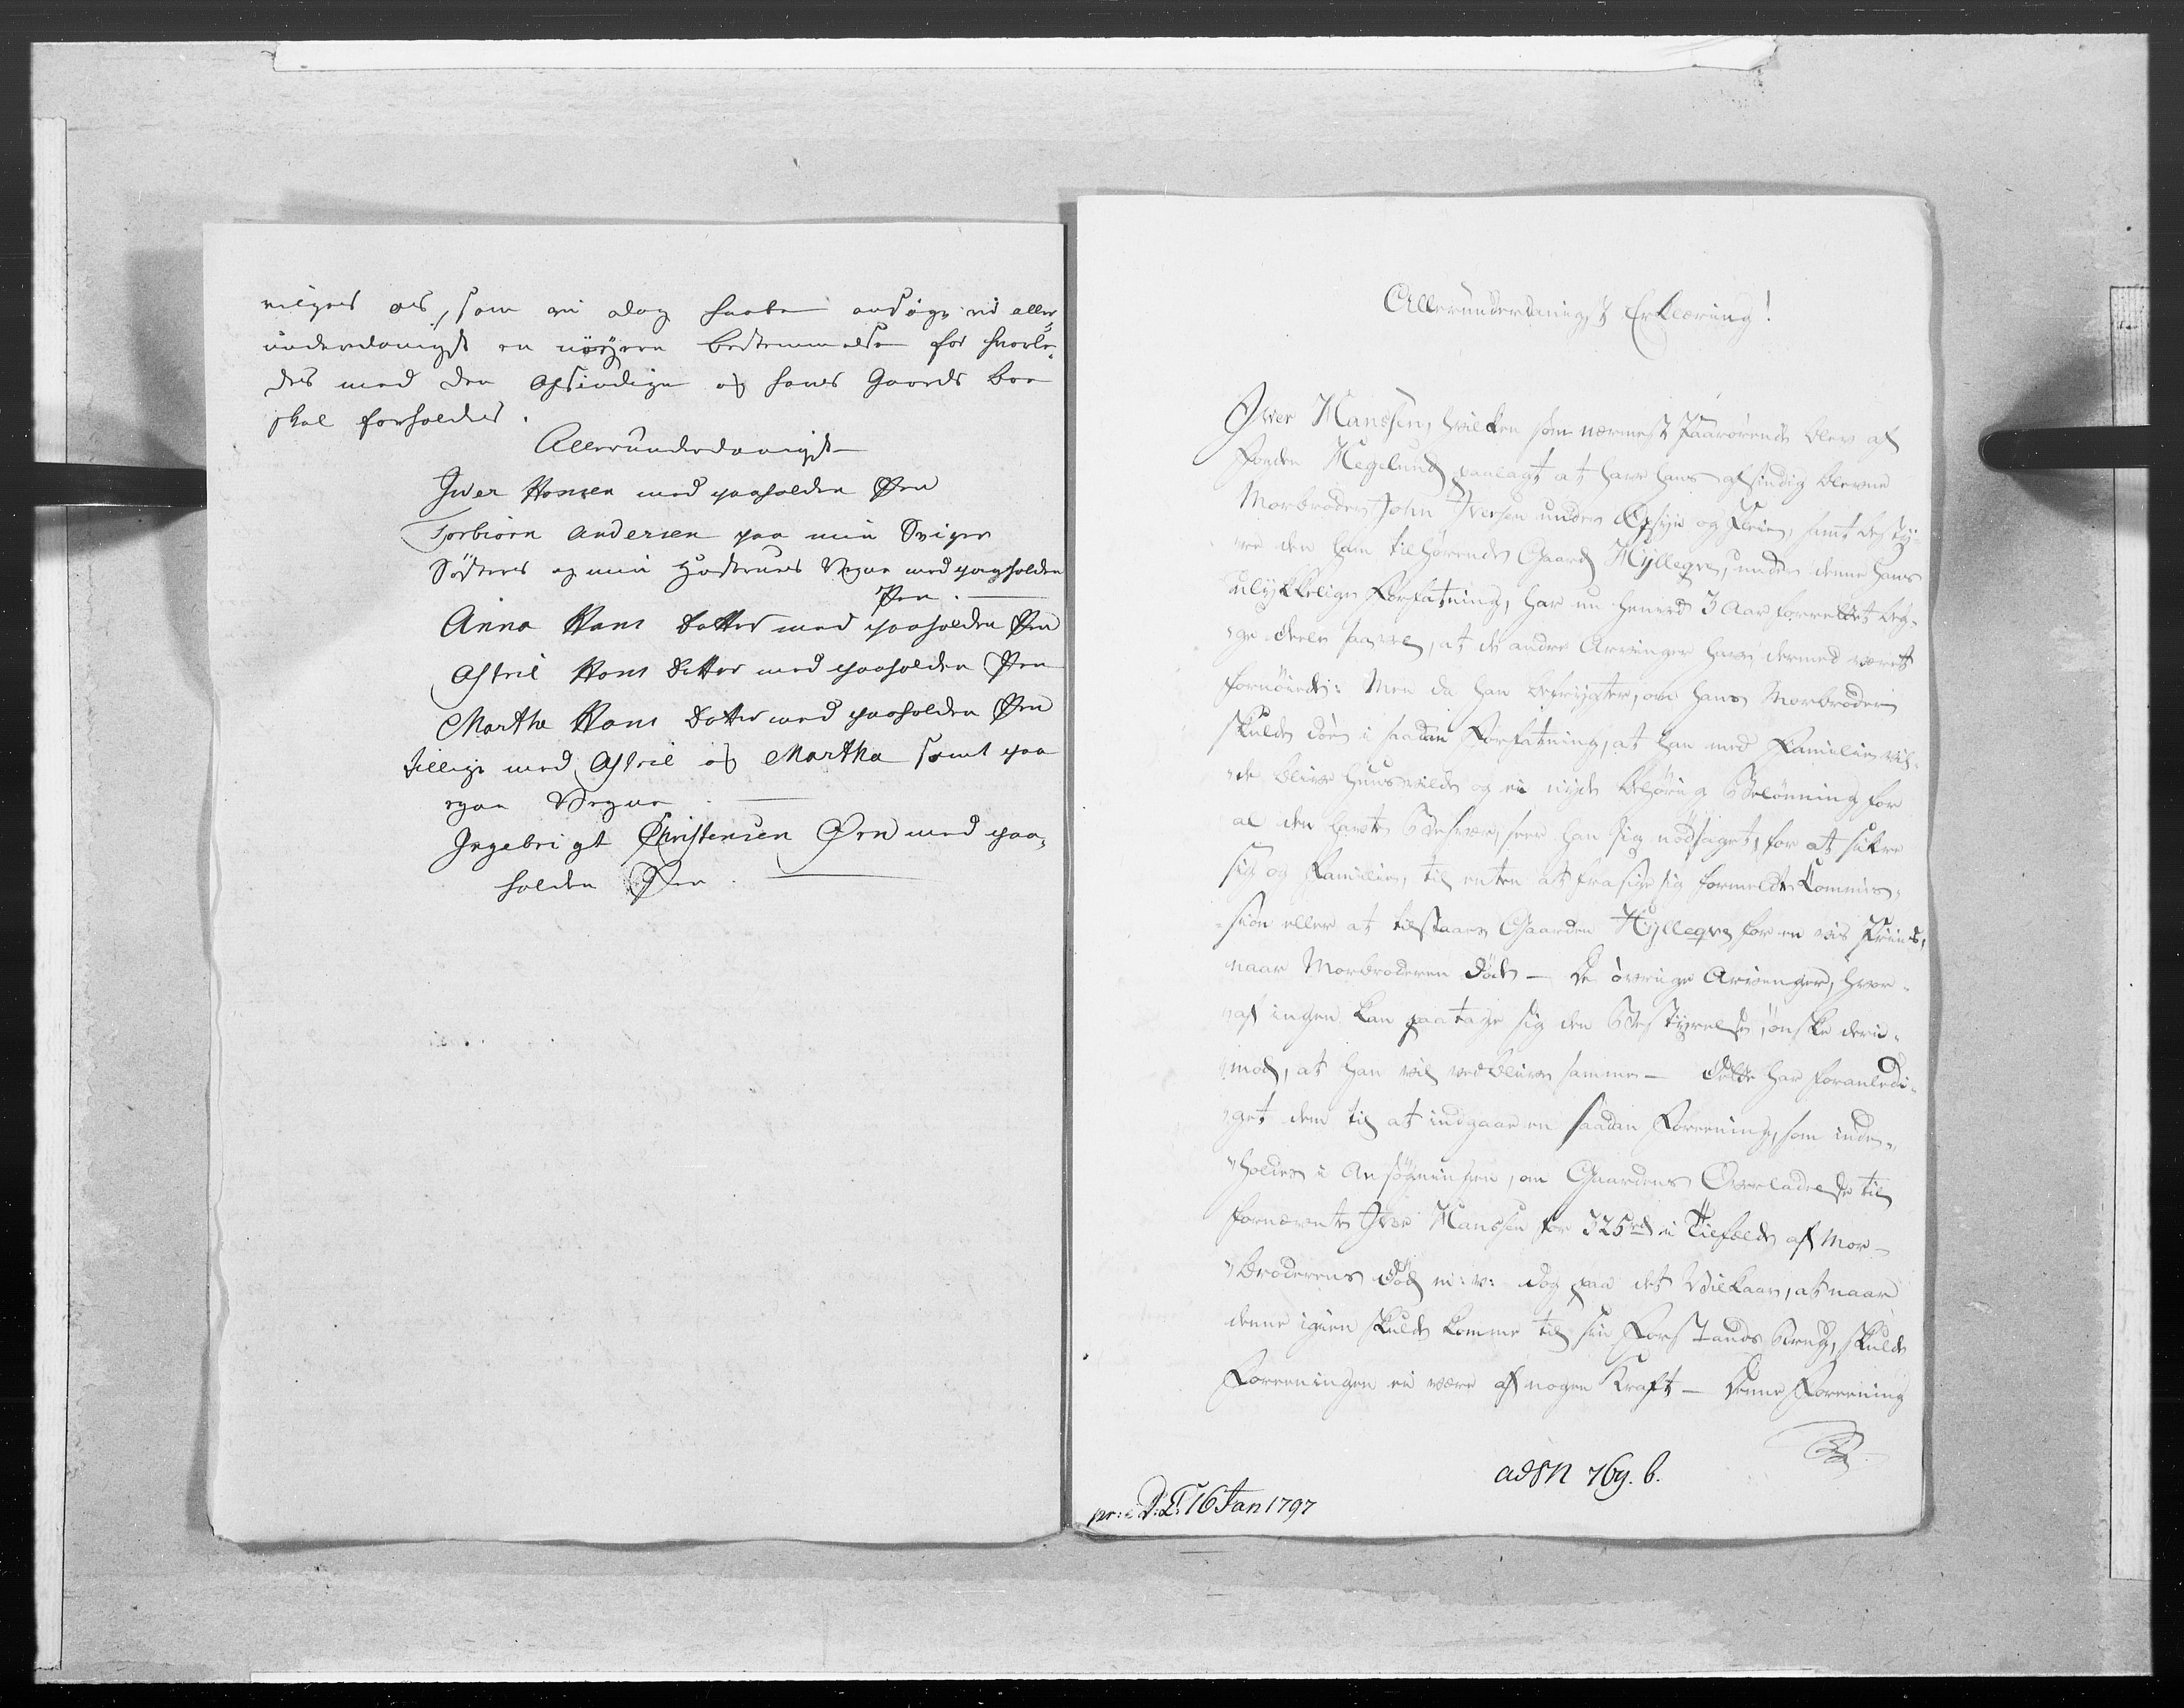 vilges os, som vi alog saaben ansöge vi aller,
underdanigst en nöyere bestemmelse for hvorle,
des med den Afsindige og hans Gaards bon
skal forholdes.
Allerunderdanigst
Iver Hansen med paaholden Pen
Torbiörn Andersen paa min Sviger
Södters og min Hustrues Vegne med paaholden
Pen.
Anna Hans Datter med paaholden Pen
Astril Hans Datter med paaholden Pen
Martha Hans Datter med paaholden Pen
tillige med Astril og Martha samt paa
egne Vegne.
Ingebrigt Christensen Örn med paa,
holden Pen.
Allerunderdanigst Erklæring!
Iver Hanssen, hvilken som nærmest Paarörende blev af
Fogden Hegelund paalagt at have hans afsindig blevne
Morbroder John Iversen under Opsyn og Pleie, samt besty-
re den ham tilhörende Gaard Hyllegre, under denne hans
ulykkelige Forfatning, har nu henved 3 Aar forrettet beg-
ge deele saavel, at de andre Arvinger have dermed været
fornöiede: Men da han befrygter, om hans Morbroder
skulde döe i saadan Forfatning, at han med Familie vil-
de blive huusvilde og ei nyde behörig Belönning for
al den havte Besvær, seer han sig nödsaget, for at sikre
sig og Familie, til enten at frasige sig formeldte Commis-
sion eller at tilstaaes Gaarden Hyllegre for en vis Priis,
naar Morbroderen döde — De övrige Arvinger, hvor-
af ingen kan paatage sig den Bestyrelse, önske deri-
mod, at han vil vedblive samme — Dette har foranledi-
get dem til at indgaae en saadan Foreening, som inde-
holdes i Ansögningen, om Gaardens Overladelse til
fornævnte Iver Hanssen for 325 rd i Tilfælde af Mor-
broderens Död m: v: dog paa det Vilkaar, at naar
denne igien skulde komme til sin Forstands Brug, skulde
Foreeningen ei være af nogen Kraft — Denne Foreening
ad N 769. b.
pr: D: C: 16 Jan 1797